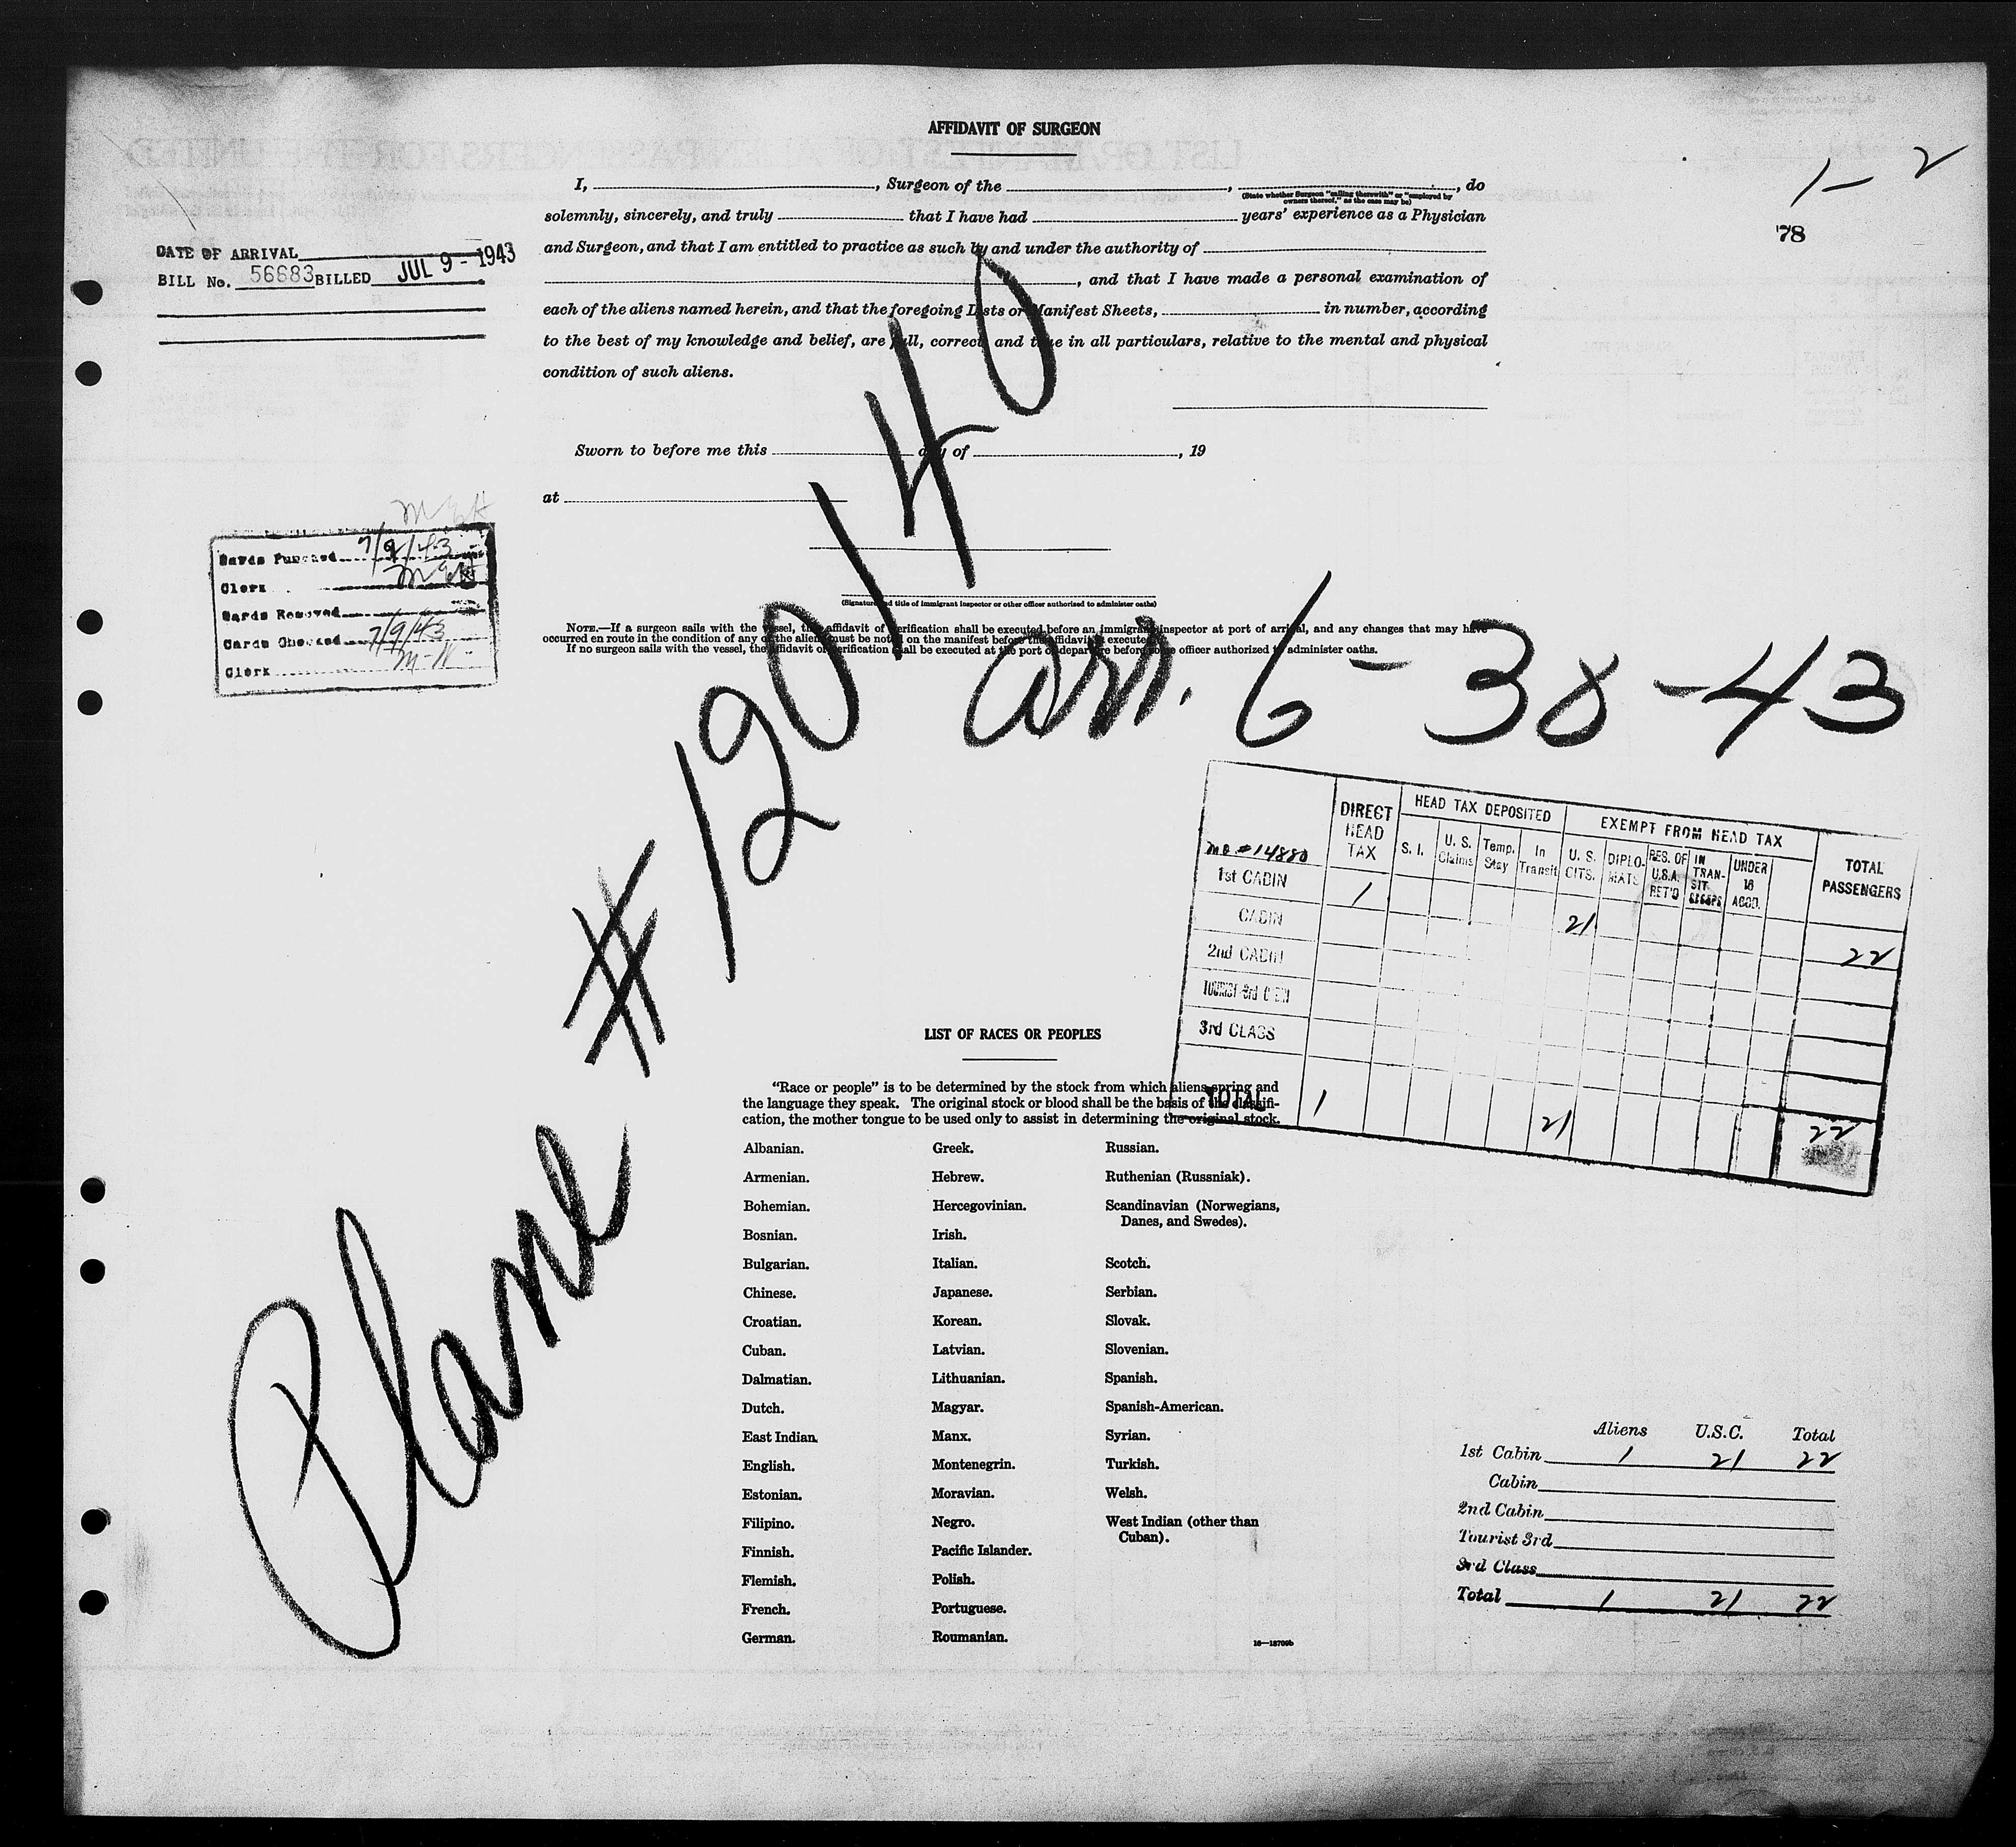 AFFIDAVIT OF SURGEON
1-2
78
I, , Surgeon of the , , do
(State whether Surgeon "sailing therewith" or "employed by
owners thereof," as the case may be)
solemnly, sincerely, and truly that I have had years' experience as a Physician
and Surgeon, and that I am entitled to practice as such by and under the authority of
, and that I have made a personal examination of
each of the aliens named herein, and that the foregoing Lists or Manifest Sheets, in number, according
to the best of my knowledge and belief, are full, correct, and true in all particulars, relative to the mental and physical
condition of such aliens.
DATE OF ARRIVAL
BILL No. 56683 BILLED JUL 9 - 1943
Sworn to before me this day of , 19
at
(Signature and title of immigrant inspector or other officer authorized to administer oaths)
NOTE.—If a surgeon sails with the vessel, the affidavit of verification shall be executed before an immigrant inspector at port of arrival, and any changes that may have
occurred en route in the condition of any of the aliens must be noted on the manifest before the affidavit is executed.
If no surgeon sails with the vessel, the affidavit of verification shall be executed at the port of departure before some officer authorized to administer oaths.
Cards Punched 7/9/43
Clerk
Cards Removed
Cards Checked 7/9/43
Clerk
Plane #120140
arr. 6-30-43
DIRECT HEAD TAX
HEAD TAX DEPOSITED
EXEMPT FROM HEAD TAX
TOTAL PASSENGERS
S. I.
U. S. Claims
Temp. Stay
In Transit
U. S. CITS.
DIPLO-MATS
RES. OF U.S.A. RET'D
IN TRAN-SIT
UNDER 16 ACCD.
#14880
1st CABIN 1 21 22
CABIN
2nd CABIN
TOURIST 3rd CABIN
3rd CLASS
TOTAL 1 21 22
LIST OF RACES OR PEOPLES
"Race or people" is to be determined by the stock from which aliens spring and
the language they speak. The original stock or blood shall be the basis of the classifi-
cation, the mother tongue to be used only to assist in determining the original stock.
Albanian.
Armenian.
Bohemian.
Bosnian.
Bulgarian.
Chinese.
Croatian.
Cuban.
Dalmatian.
Dutch.
East Indian.
English.
Estonian.
Filipino.
Finnish.
Flemish.
French.
German.
Greek.
Hebrew.
Hercegovinian.
Irish.
Italian.
Japanese.
Korean.
Latvian.
Lithuanian.
Magyar.
Manx.
Montenegrin.
Moravian.
Negro.
Pacific Islander.
Polish.
Portuguese.
Roumanian.
Russian.
Ruthenian (Russniak).
Scandinavian (Norwegians,
Danes, and Swedes).
Scotch.
Serbian.
Slovak.
Slovenian.
Spanish.
Spanish-American.
Syrian.
Turkish.
Welsh.
West Indian (other than
Cuban).
16—18709b
Aliens U.S.C. Total
1st Cabin 1 21 22
Cabin
2nd Cabin
Tourist 3rd
3rd Class
Total 1 21 22